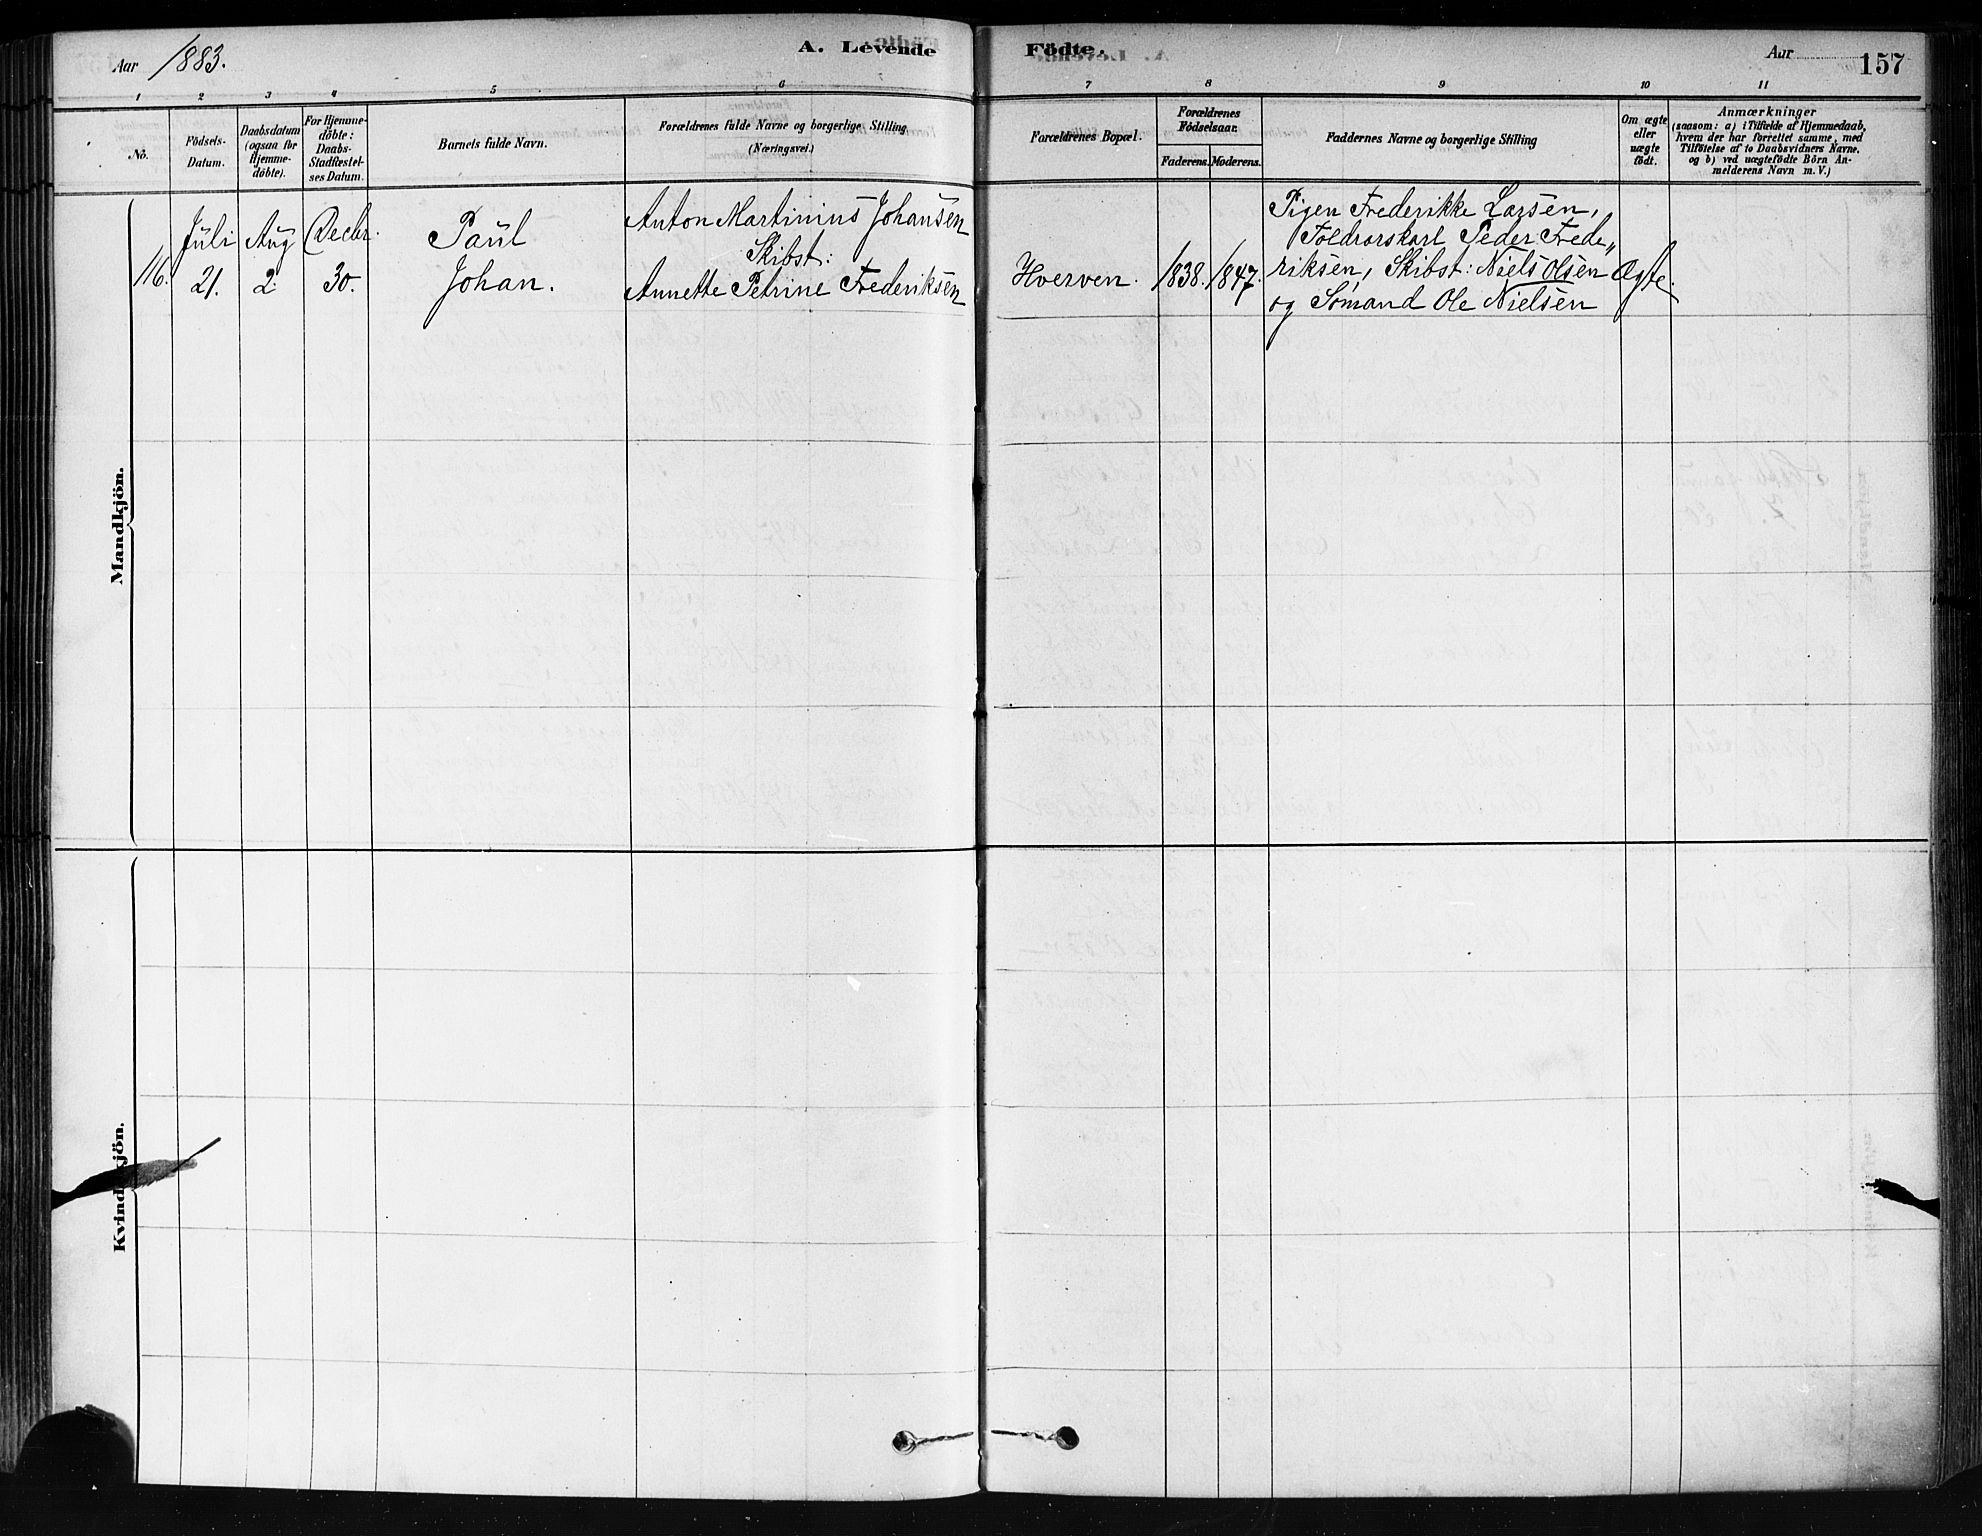 Aar 1883.
A. Levende
Födte.
Aar
157
1 2 3 4 5 6 7 8 9 10 11
No.
Födsels-
Datum.
Daabsdatum
(ogsaa for
Hjemme-
döbte).
For Hjemme-
döbte:
Daabs-
Stadfæstel-
ses Datum.
Barnets fulde Navn.
Forældrenes fulde Navne og borgerlige Stilling
(Næringsvei.)
Forældrenes Bopæl.
Forældrenes
Födselsaar.
Faderens. Moderens.
Faddernes Navne og borgerlige Stilling
Om ægte
eller
uægte
födt.
Anmærkninger
(saasom: a) i Tilfælde af Hjemmedaab,
hvem der har forrettet samme, med
Tilföielse af to Daabsvidners Navne.
og b) ved uægtefödte Börn An-
melderens Navn m. V.)
Mandkjön.
116.
Juli
21.
Aug
2.
Decbr.
30.
Paul
Johan.
Anton Martinius Johansen
Skibst:
Annette Petrine Frederiksen
Hverven.
1838.
1847.
Pigen Frederikke Larsen,
Foldrorskarl Peder Frede„
riksen, Skibst: Niels Olsen
og Sömand Ole Nielsen
Ægte.
Kvindekjön.